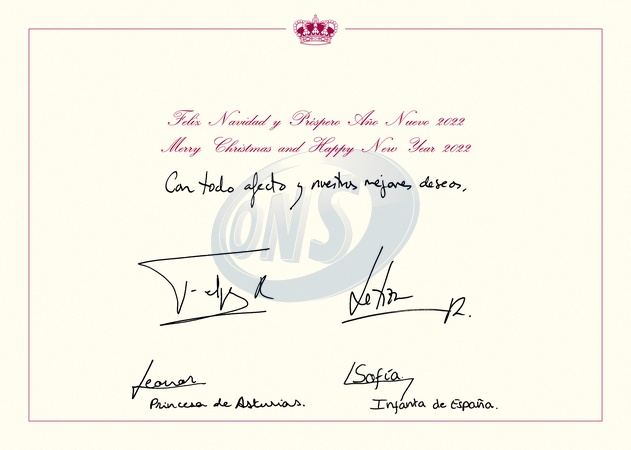 Feliz Navidad y Próspero Año Nuevo 2022
Merry Christmas and Happy New Year 2022
Con todo afecto y nuestros mejores deseos,
ONS
Felipe R
Letizia R.
Leonor
Sofía
Princesa de Asturias.
Infanta de España.